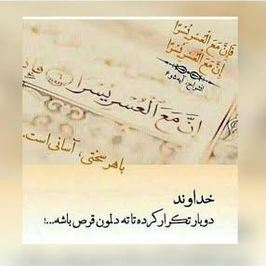 فَإِنَّ مَعَ الْعُسْرِ يُسْرًا
إِنَّ مَعَ الْعُسْرِ يُسْرًا
إِنَّ مَعَ الْعُسْرِ يُسْرًا
با هر سختی، آسانی است.
خداوند
دوبار تکرار کرده تا ته دلمون قرص باشه...!